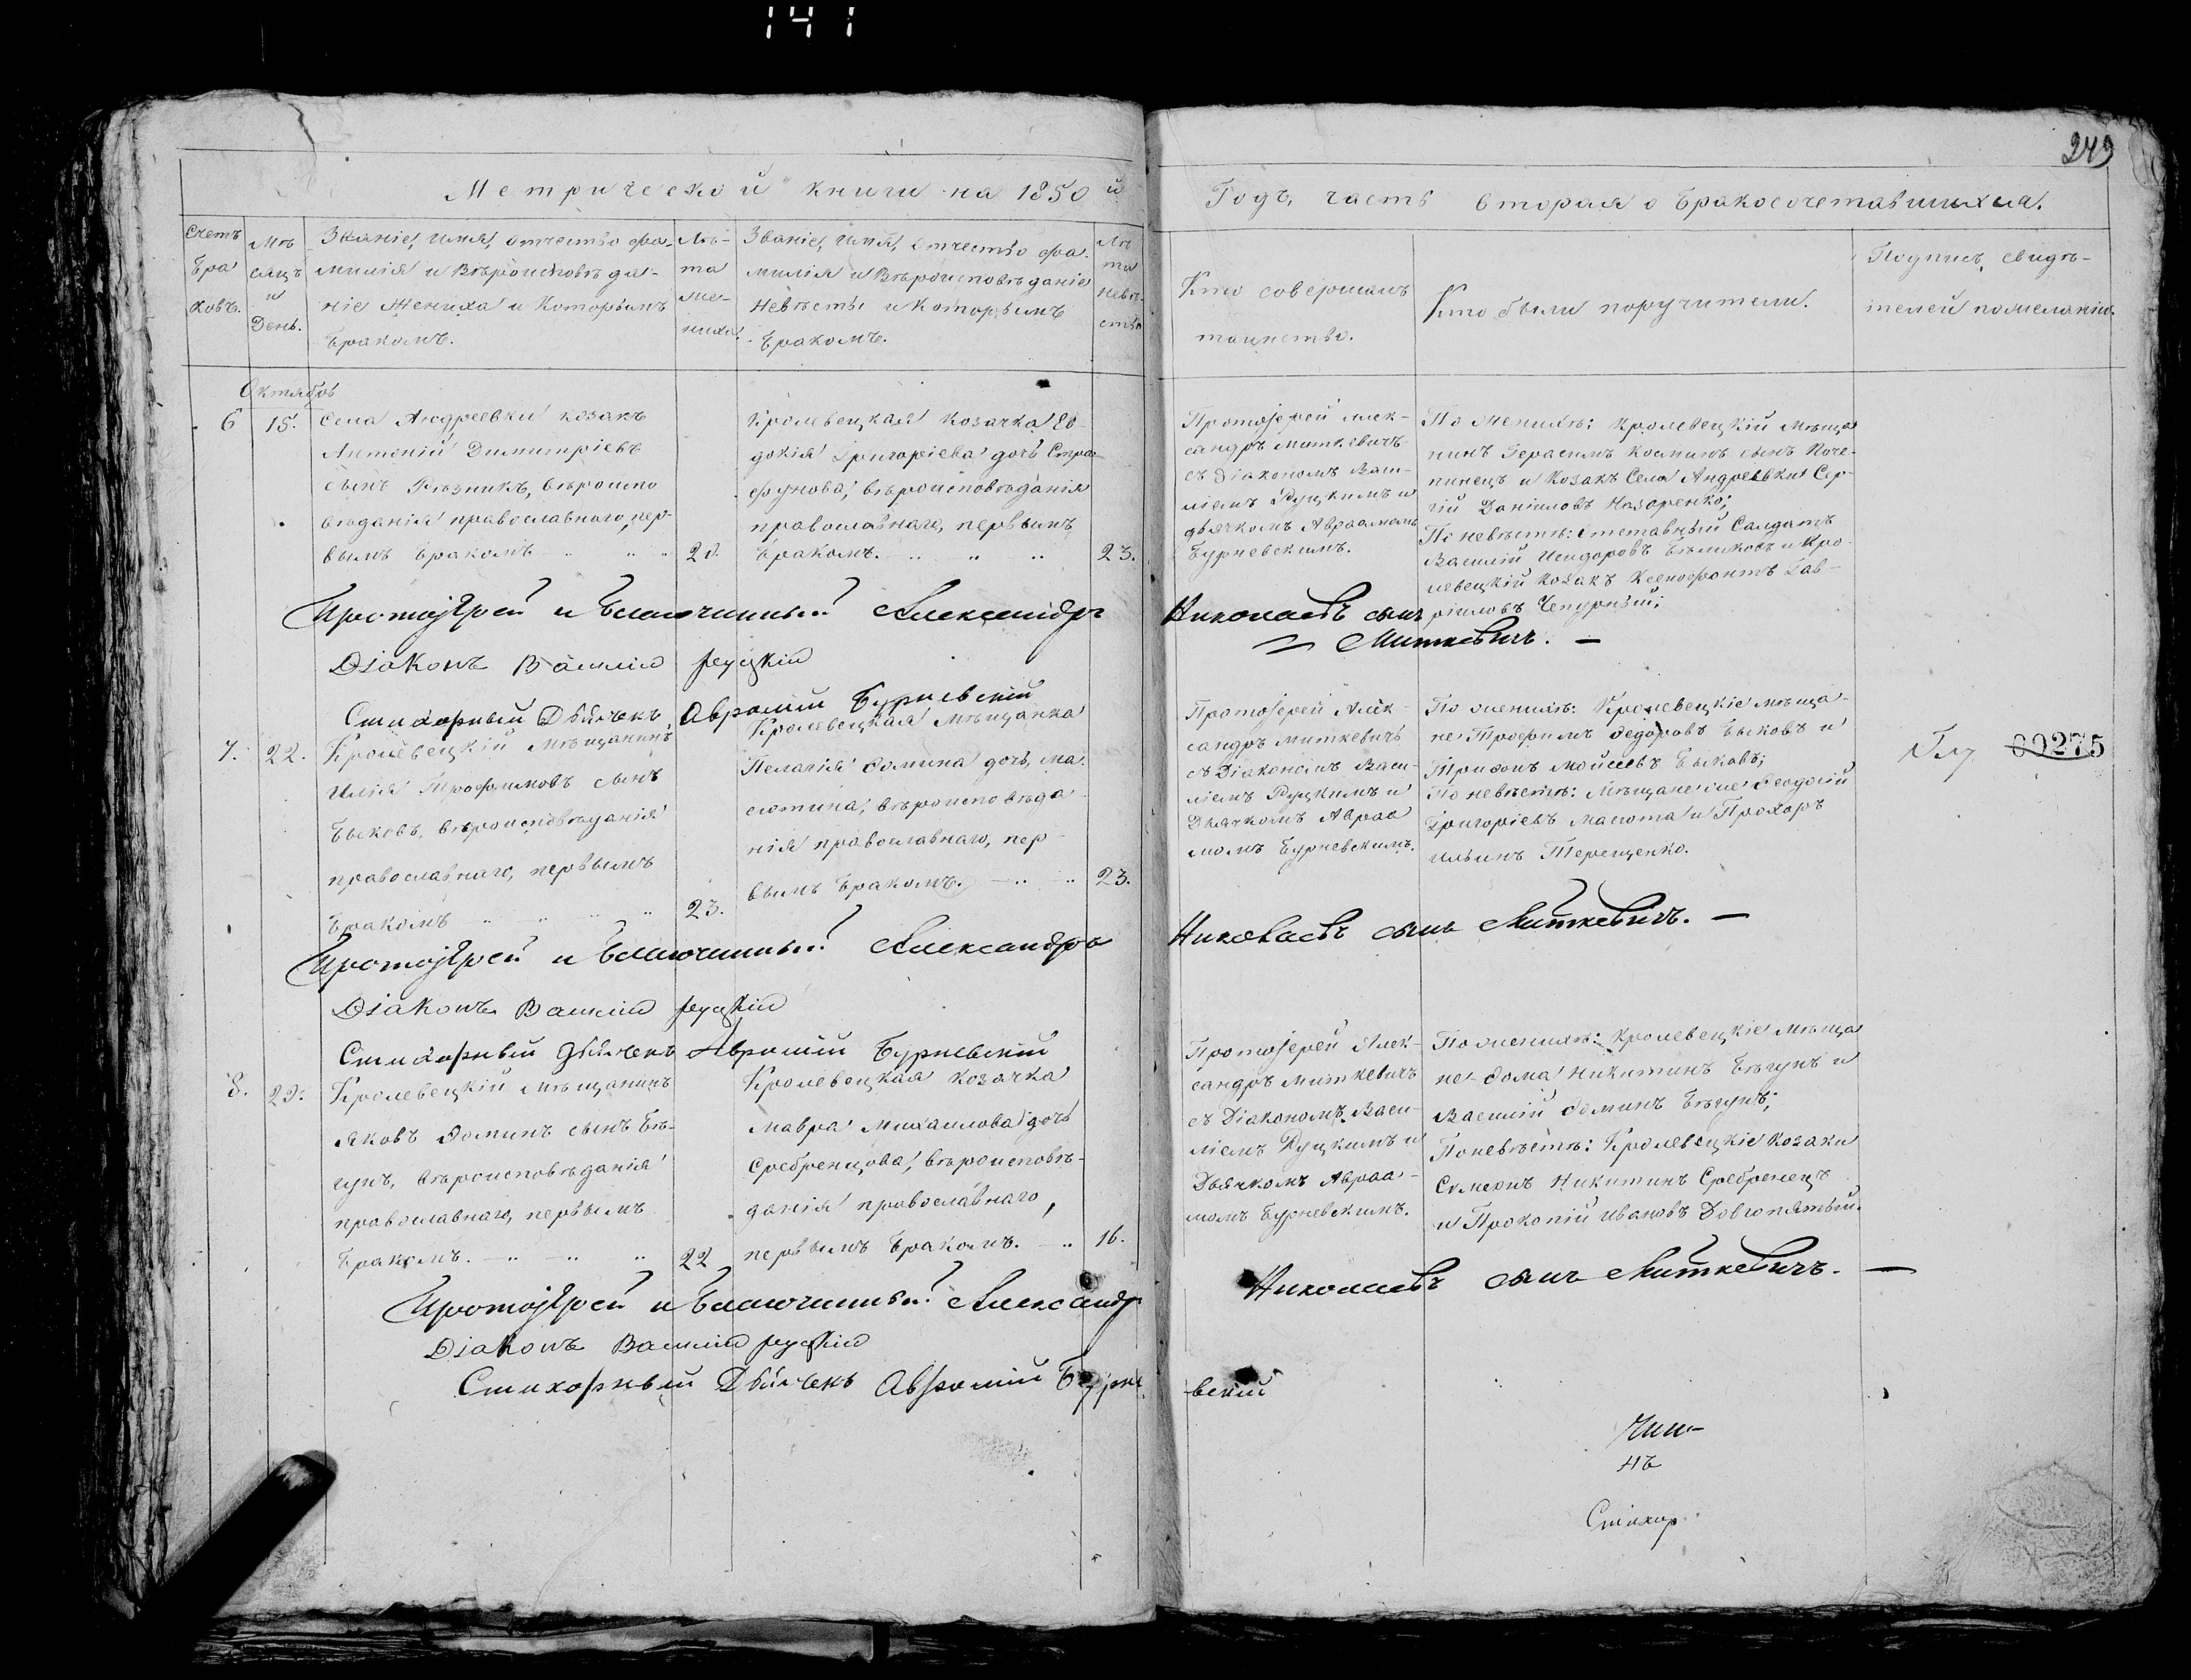 141
249
Метрической книги на 1850 й
Годъ, часть вторая о бракосочетавшихся.
Счетъ
бра
ковъ.
Мѣ
сяцъ
и
День.
Званіе, имя, отчество фа-
милія и Вѣроисповѣда-
ніе Жениха и Которымъ
бракомъ.
Лѣ-
та
же-
ниха.
Званіе, имя, отчество фа-
милія и Вѣроисповѣданіе
Невѣсты и Которымъ
бракомъ.
Лѣ
та
Невѣ-
сты
Кто совершалъ
таинство.
Кто были поручители.
Подпись свидѣ-
телей по желанію.
Октябрь
6
15.
Села Андреевки козакъ
Антоній Димитріевъ
сынъ Рѣзникъ, вѣроиспо
вѣданія православнаго, пер-
вымъ бракомъ
Кролевецкая козачка Ев-
докія Григоріева дочь
вѣроисповѣданія
православнаго, первымъ
бракомъ.
23.
Протоіерей Алек-
сандръ Миткевичъ
съ Діакономъ Васи-
ліемъ Руцкимъ и
дьячкомъ Авраамомъ
Бурневскимъ.
По женихѣ: Кролевецкій Мѣща
нинъ Герасимъ Косминъ сынъ Поче-
пинецъ и Козакъ Села Андреевки Сер-
гій Даніиловъ Назаренко;
По невѣстѣ: Отставный Салдатъ
Василій Исидоровъ Бѣликовъ и Кро-
левецкій козакъ Ксенофонтъ Гав-
ріиловъ Чепурный;
Протоіерей и Благочинный Александръ
Николаевъ сынъ
Миткевичъ.
Діаконъ Василій Руцкій
Стихарный Дьячекъ Аврамій Бурневскій
7.
22.
Кролевецкій Мѣщанинъ
Илія Трофимовъ сынъ
Быковъ, вѣроисповѣданія
православнаго, первымъ
бракомъ
23.
Кролевецкая Мѣщанка
Пелагія Ѳомина дочь, Ма
сютина, вѣроисповѣда
нія православнаго, пер-
вымъ бракомъ.
23.
Протоіерей Алек-
сандръ Миткевичъ
съ Діакономъ Васи-
ліемъ Руцкимъ и
Дьячкомъ Авраа
момъ Бурневскимъ.
По женихѣ: Кролевецкіе мѣща-
не Трофимъ Ѳедоровъ Быковъ и
Трифонъ Мойсеевъ Быковъ;
По невѣстѣ: Мѣщане Ѳеодосій
Григоріевъ Масюта и Прохоръ
Ильинъ Терещенко.
00275
Протоіерей и Благочинный Александръ
Николаевъ сынъ Миткевичъ.
Діаконъ Василій Руцкій
Стихарный дьячекъ Аврамій Бурневскій
8.
29.
Кролевецкій Мѣщанинъ
Яковъ Ѳоминъ сынъ Бѣ-
гунъ, вѣроисповѣданія
православнаго, первымъ
бракомъ.
22
Кролевецкая козачка
Мавра Михаилова дочь
Сребренцова, вѣроисповѣ-
данія православнаго,
первымъ бракомъ.
16.
Протоіерей Алек-
сандръ Миткевичъ
съ Діакономъ Васи-
ліемъ Руцкимъ и
Дьячкомъ Авраа-
момъ Бурневскимъ.
По женихѣ: Кролевецкіе Мѣща
не Ѳома Никитинъ Бѣгунъ и
Василій Ѳоминъ Бѣгунъ;
По невѣстѣ: Кролевецкіе Козаки
Симеонъ Никитинъ Сребренецъ
и Прокопій Ивановъ Довгопятый.
Протоіерей и Благочинный Александръ
Николаевъ сынъ Миткевичъ.
Діаконъ Василій Руцкій
Стихарный Дьячекъ Аврамій Бурне
вскій
Стихар